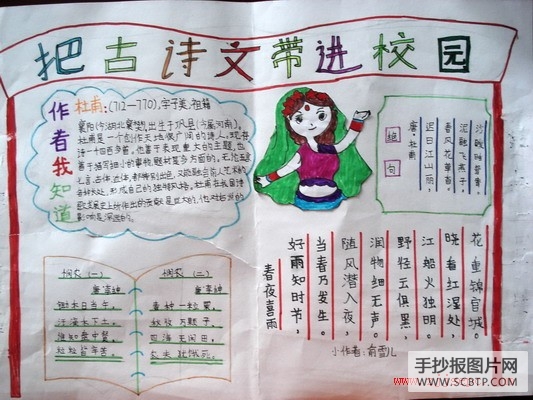 把古诗文带进校园
作者我知道
杜甫:(712—770),字子美,祖籍
襄阳(今湖北襄樊),出生于巩县(今属河南)。
杜甫是一个创作天地很广阔的诗人,现存
诗一千四百多首。他善于表现重大的主题,也
善于描写细小的事物,题材甚多方面的。无论五言
七言,古体近体,都特别
绝句
唐·杜甫
迟日江山丽,
春风花草香。
泥融飞燕子,
沙暖睡鸳鸯。
悯农(一)
唐李绅
锄禾日当午,
汗滴禾下土。
谁知盘中餐,
粒粒皆辛苦。
悯农(二)
唐李绅
春种一粒粟,
秋收万颗子。
四海无闲田,
农夫犹饿死。
春夜喜雨
好雨知时节,
当春乃发生。
随风潜入夜,
润物细无声。
野径云俱黑,
江船火独明。
晓看红湿处,
花重锦官城。
小作者:俞雪儿
手抄报图片网
WWW.SCBTP.COM